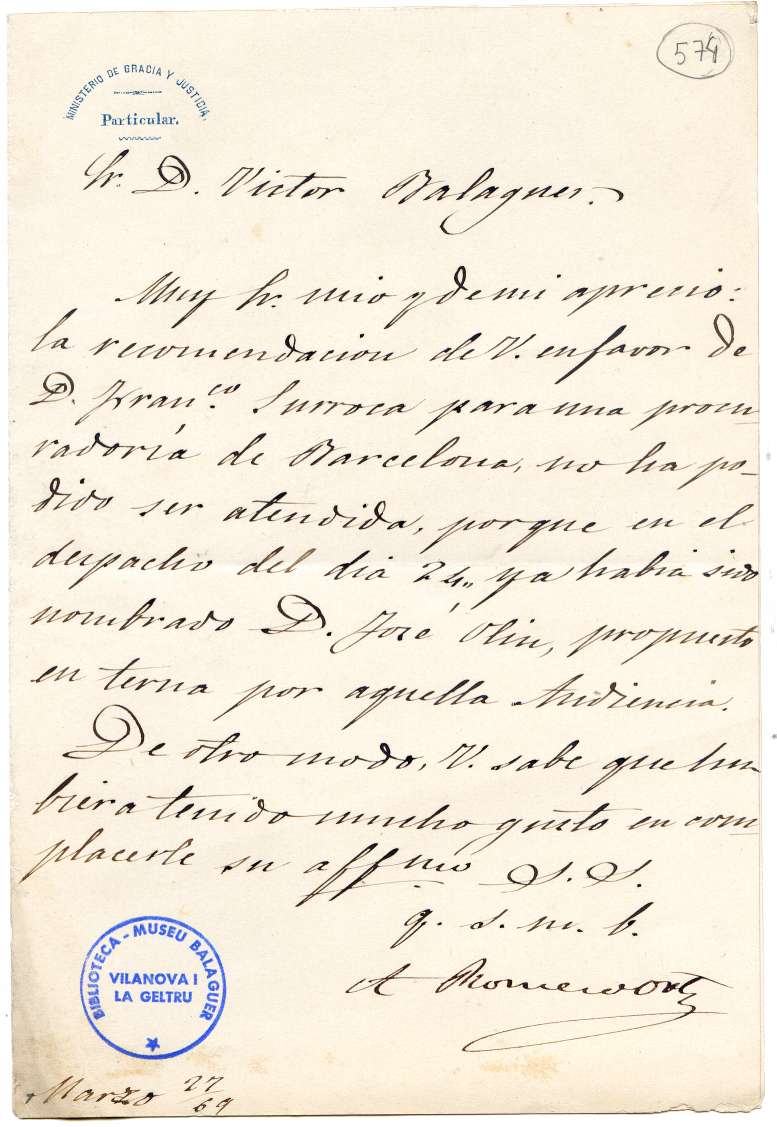 574
MINISTERIO DE GRACIA Y JUSTICIA.
Particular.
Sr. D. Victor Balaguer.
Muy Sr. mio y de mi aprecio:
la recomendacion de V. en favor de
D. Fran.co Surroca para una procu-
radoría de Barcelona, no ha po-
dido ser atendida, porque en el
despacho del dia 24,, ya habia sido
nombrado D. José Olin, propuesto
en terna por aquella Audiencia.
De otro modo, V. sabe que hu-
biera tenido mucho gusto en com-
placerle su affmo. S. S.
q. s. m. b.
A Romero Ortiz
BIBLIOTECA - MUSEU BALAGUER
VILANOVA I
LA GELTRU
Marzo 27/69